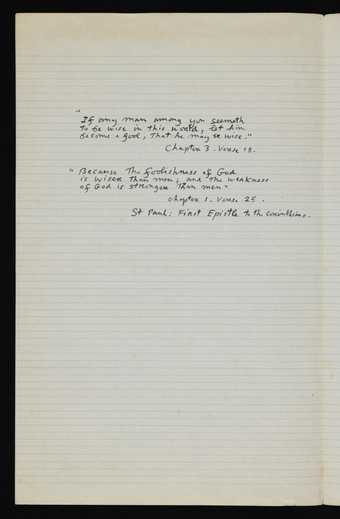 "If any man among you seemeth
to be wise in this world, let him
become a fool, that he may be wise."
Chapter 3. Verse 18.
"Because The foolishness of God
is wiser than men; and the weakness
of God is stronger than men"
Chapter 1. Verse 25.
St Paul: First Epistle to th Corinthians.